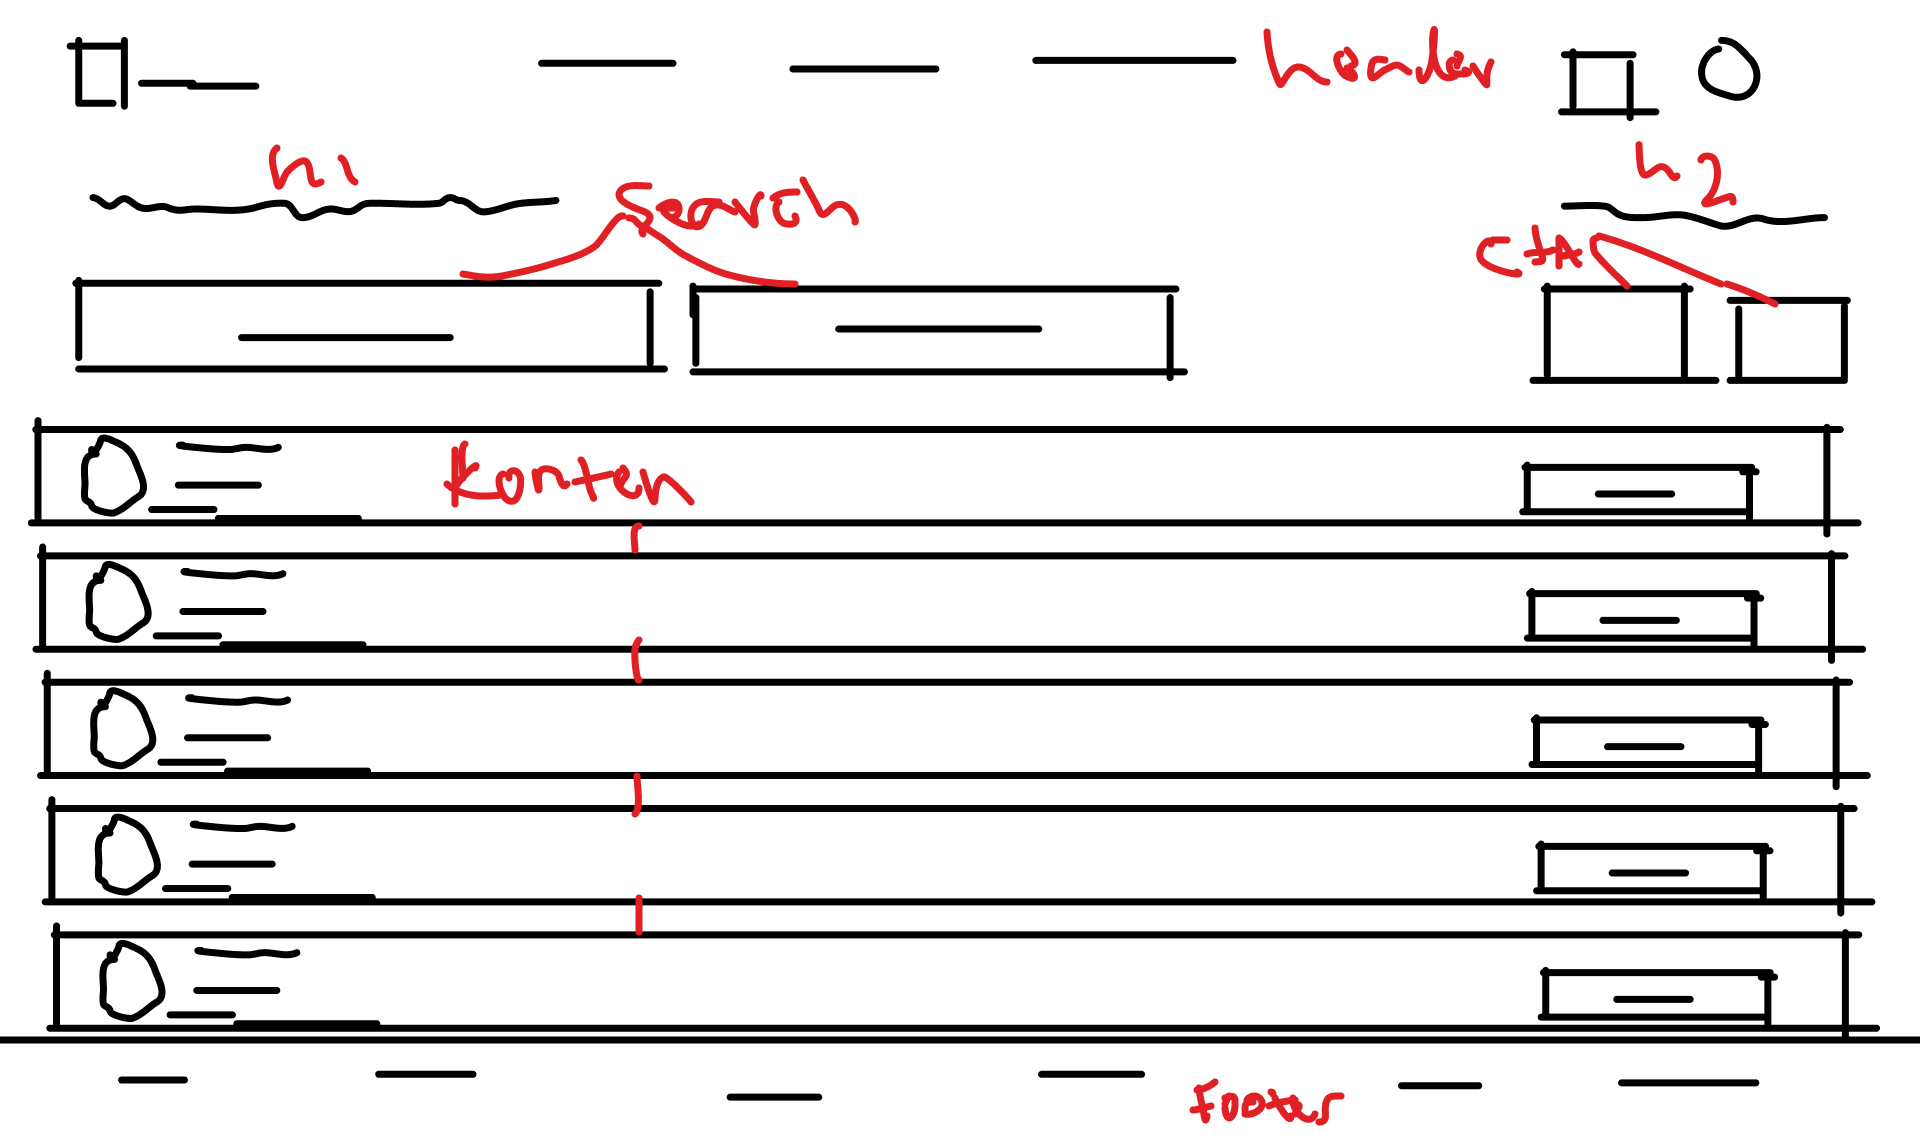 header
h1
h2
Search
CtA
Konten
Footer